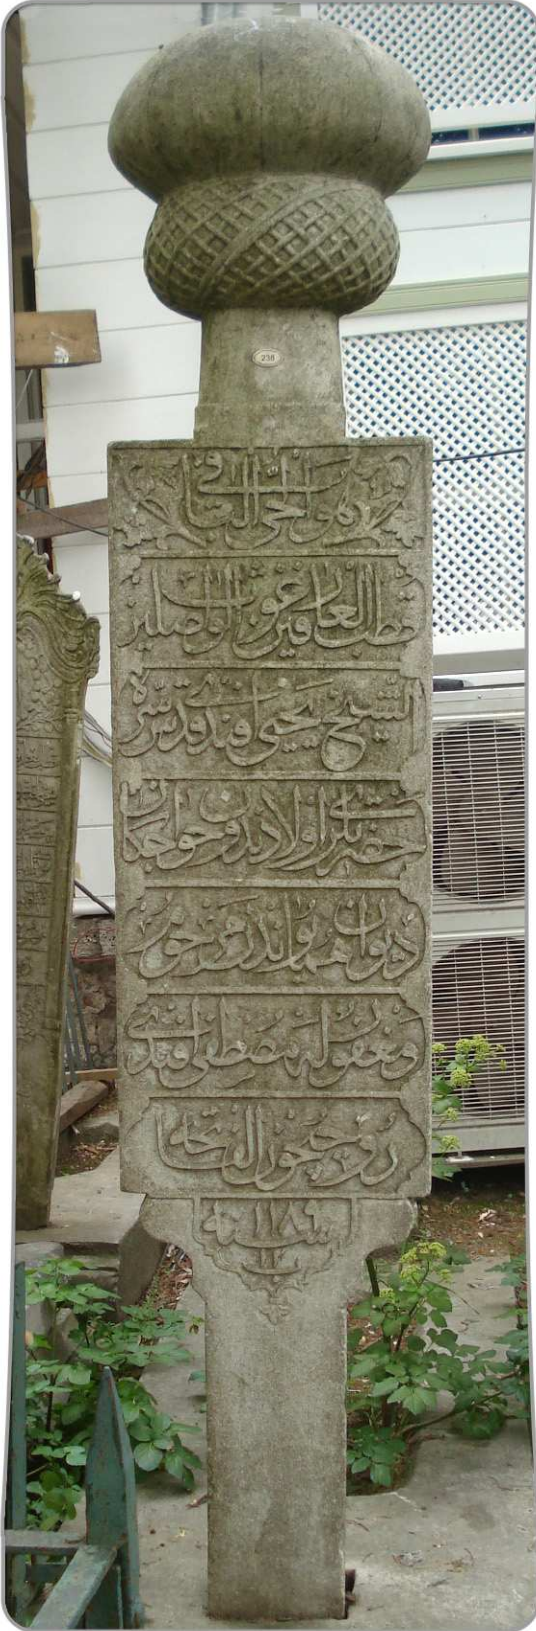 238
هو الحي الباقي
قطب العارفين غوث الواصلين
الشيخ يحيى افندى قدس سره
حضرتلرى اولادندن خواجكان
ديوان همايوندن مرحوم
ومغفور له مصطفى افندى
روحيچون الفاتحه
سنه ١١٨٦